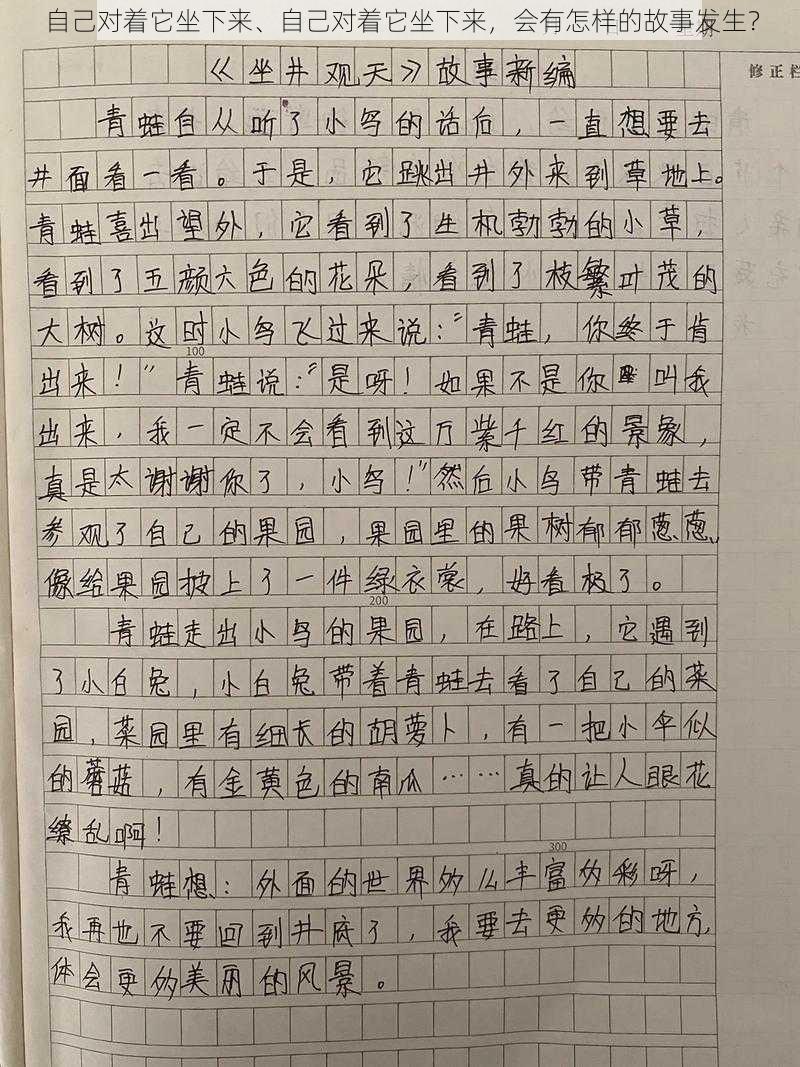 自己对着它坐下来、自己对着它坐下来，会有怎样的故事发生？
修正栏
《坐井观天》故事新编
青蛙自从听了小鸟的话后，一直想要去
井面看一看。于是，它跳出井外来到草地上。
青蛙喜出望外，它看到了生机勃勃的小草，
看到了五颜六色的花朵，看到了枝繁叶茂的
大树。这时小鸟飞过来说：“青蛙，你终于肯
100
出来！”青蛙说：“是呀！如果不是你叫我
出来，我一定不会看到这万紫千红的景象，
真是太谢谢你了，小鸟！”然后小鸟带青蛙去
参观了自己的果园，果园里的果树郁郁葱葱，
像给果园披上了一件绿衣裳，好看极了。
200
青蛙走出小鸟的果园，在路上，它遇到
了小白兔，小白兔带着青蛙去看了自己的菜
园，菜园里有细长的胡萝卜，有一把小伞似
的蘑菇，有金黄色的南瓜……真的让人眼花
缭乱啊！
300
青蛙想：外面的世界多么丰富多彩呀，
我再也不要回到井底了，我要去更多的地方，
体会更多美丽的风景。